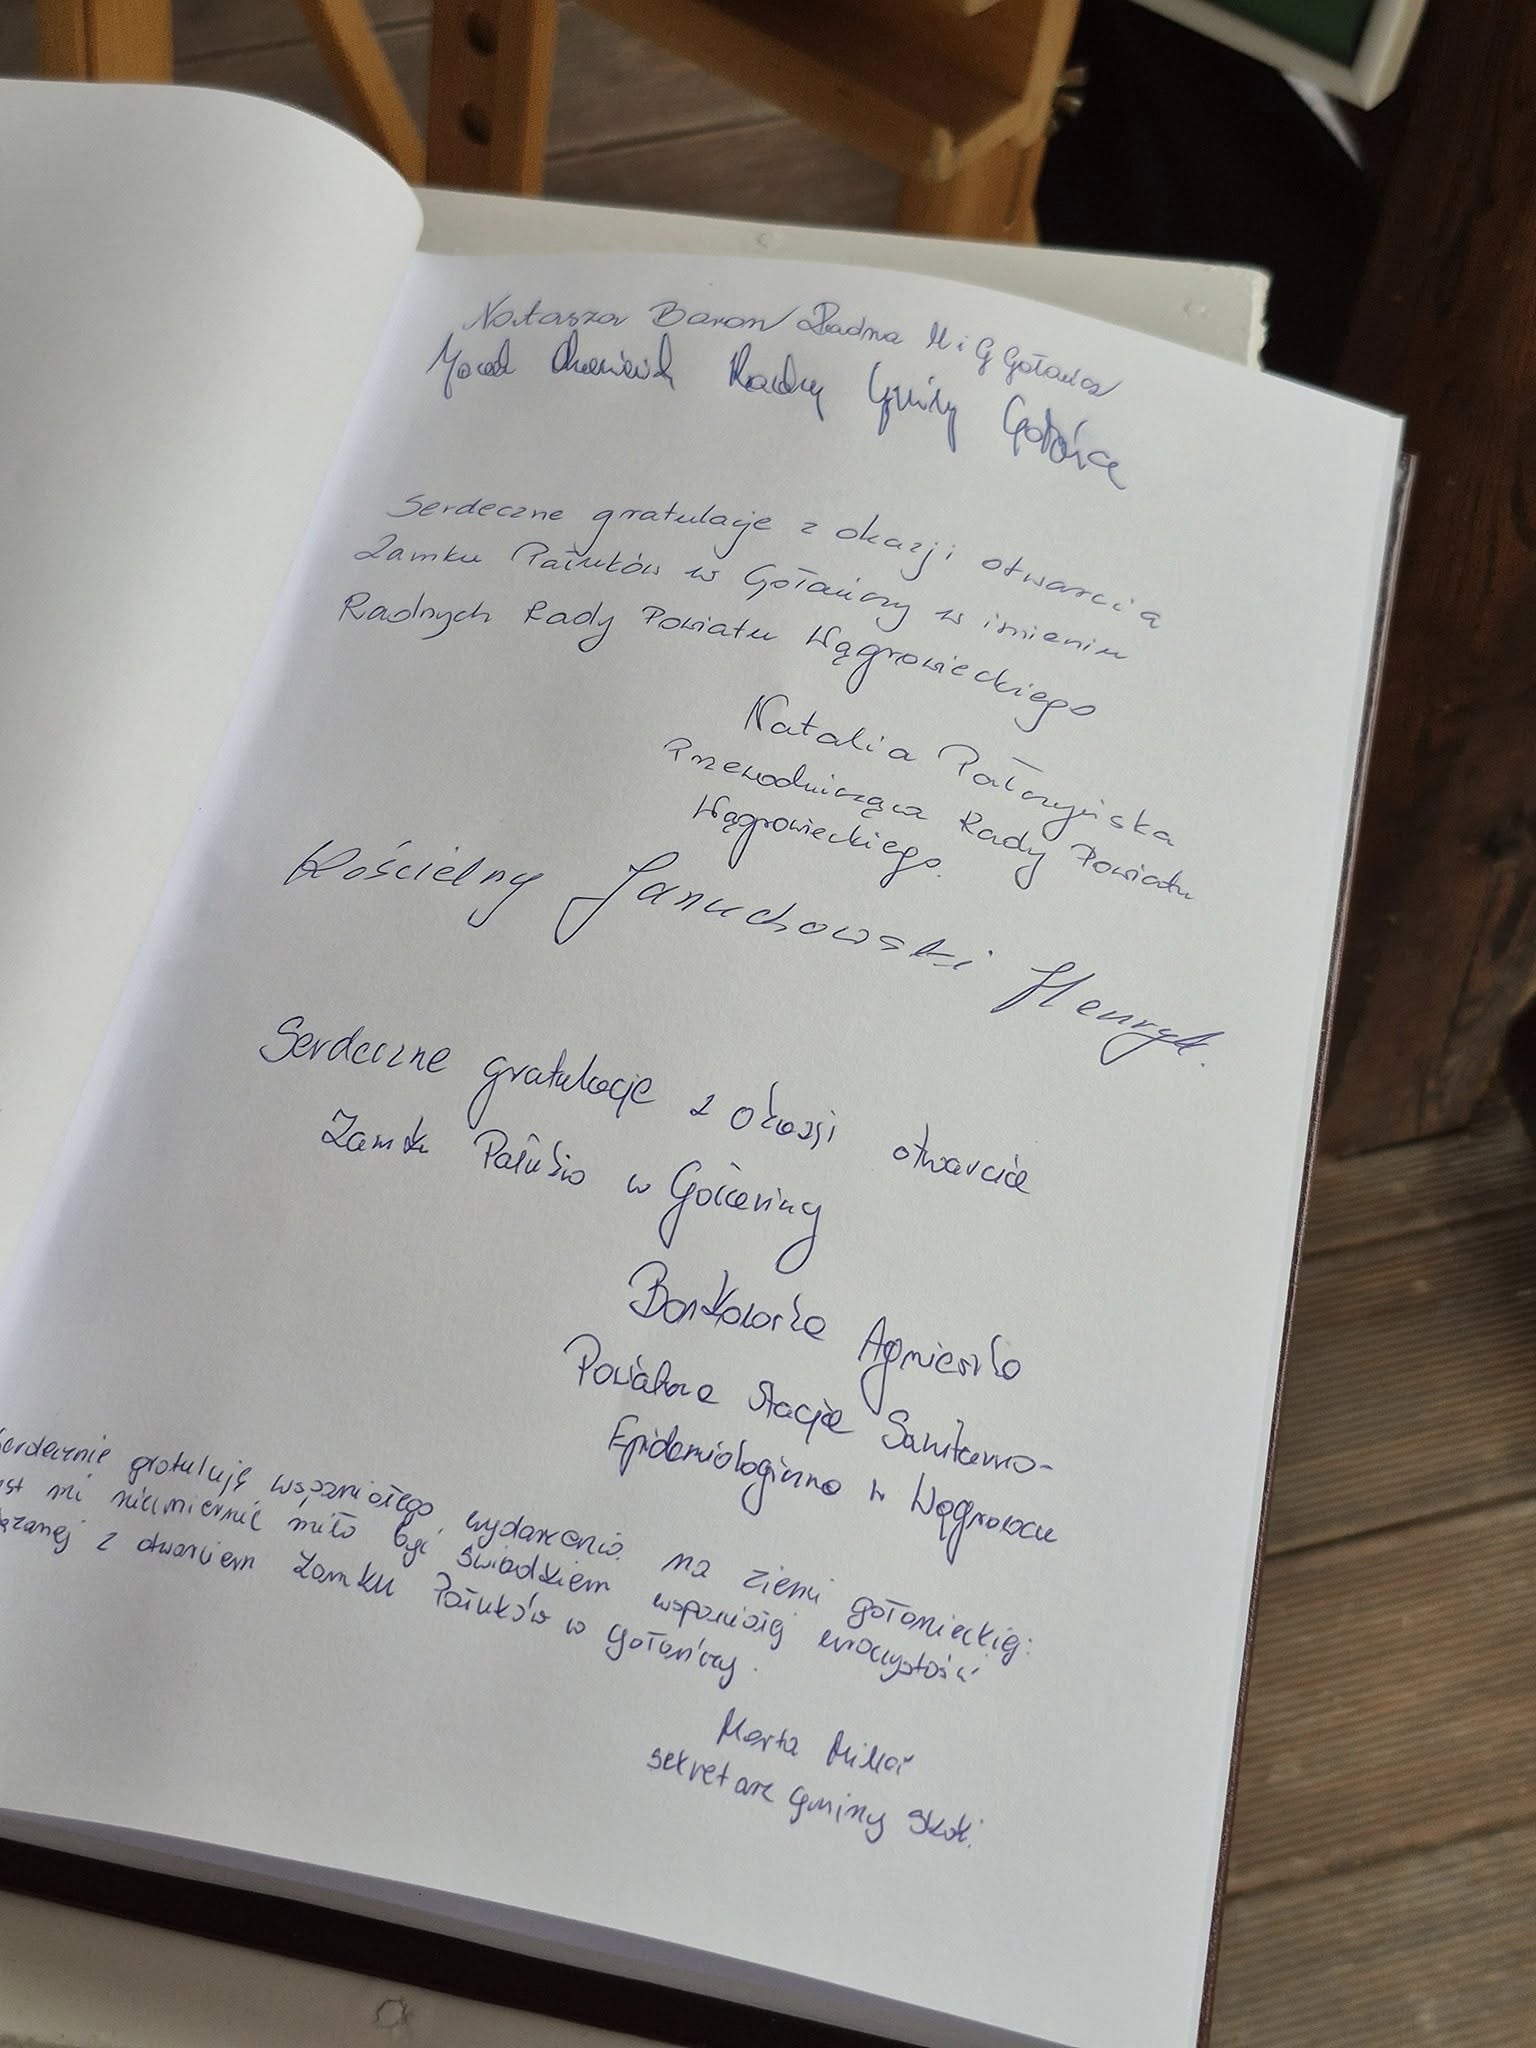 Natasza Baron Radna M i G Gołańcz
Jacek Radny Gminy Gołańcz
Serdeczne gratulacje z okazji otwarcia
Zamku Pałuków w Gołańczy w imieniu
Radnych Rady Powiatu Wągrowieckiego
Natalia Pałczyńska
Przewodnicząca Rady Powiatu
Wągrowieckiego.
Kościelny Januchowski Henryk.
Serdeczne gratulacje z okazji otwarcia
Zamku Pałuków w Gołańczy
Borkowska Agnieszka
Powiatowa Stacja Sanitarno-
Epidemiologiczna w Wągrowcu
erdecznie gratuluję wspaniałego wydarzenia na ziemi gołanieckiej.
st mi niezmiernie miło być świadkiem wspaniałej uroczystości
ązanej z otwarciem Zamku Pałuków w Gołańczy.
Marta
sekretarz gminy Skoki